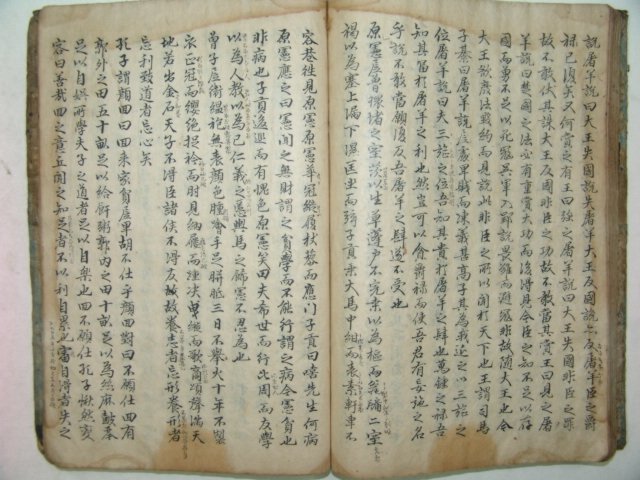 說屠羊說曰大王失國說失屠羊大王反國說亦反屠羊臣之爵
祿已復矣又何賞之有王曰强之屠羊說曰大王失國非臣之罪
故不敢伏其誅大王反國非臣之功故不敢當其賞王曰見之屠
羊說曰楚國之法必有重賞大功而後得見今臣之知不足以存
國而勇不足以死寇吳軍入郢說畏難而避寇非故隨大王也今
大王欲廢法毁約而見說此非臣之所以聞於天下也王謂司馬
子綦曰屠羊說居處卑賤而陳義甚高子其為我延之以三旌之
位屠羊說曰夫三旌之位吾知其貴於屠羊之肆也萬鍾之祿吾
知其富於屠羊之利也然豈可以食爵祿而使吾君有妄施之名
乎說不敢當願復反吾屠羊之肆遂不受也
原憲居魯環堵之室茨以生草蓬戶不完桑以為樞而甕牖二室
褐以為塞上漏下濕匡坐而弦子貢乘大馬中紺而表素軒車不
容巷往見原憲原憲華冠縰履杖藜而應門子貢曰嘻先生何病
原憲應之曰憲聞之無財謂之貧學而不能行謂之病今憲貧也
非病也子貢逡巡而有愧色原憲笑曰夫希世而行比周而友學
以為人敎以為己仁義之慝輿馬之飾憲不忍為也
曾子居衛縕袍無表顔色腫噲手足胼胝三日不擧火十年不製
衣正冠而纓絶捉衿而肘見納屨而踵决曳縰而歌商頌聲滿天
地若出金石天子不得臣諸侯不得友故養志者忘形養形者
忘利致道者忘心矣
孔子謂顔回曰回來家貧居卑胡不仕乎顔回對曰不願仕回有
郭外之田五十畝足以給飦粥郭內之田十畝足以為絲麻鼓琴
足以自娛所學夫子之道者足以自樂也回不願仕孔子愀然變
容曰善哉回之意丘聞之知足者不以利自累也審自得者失之